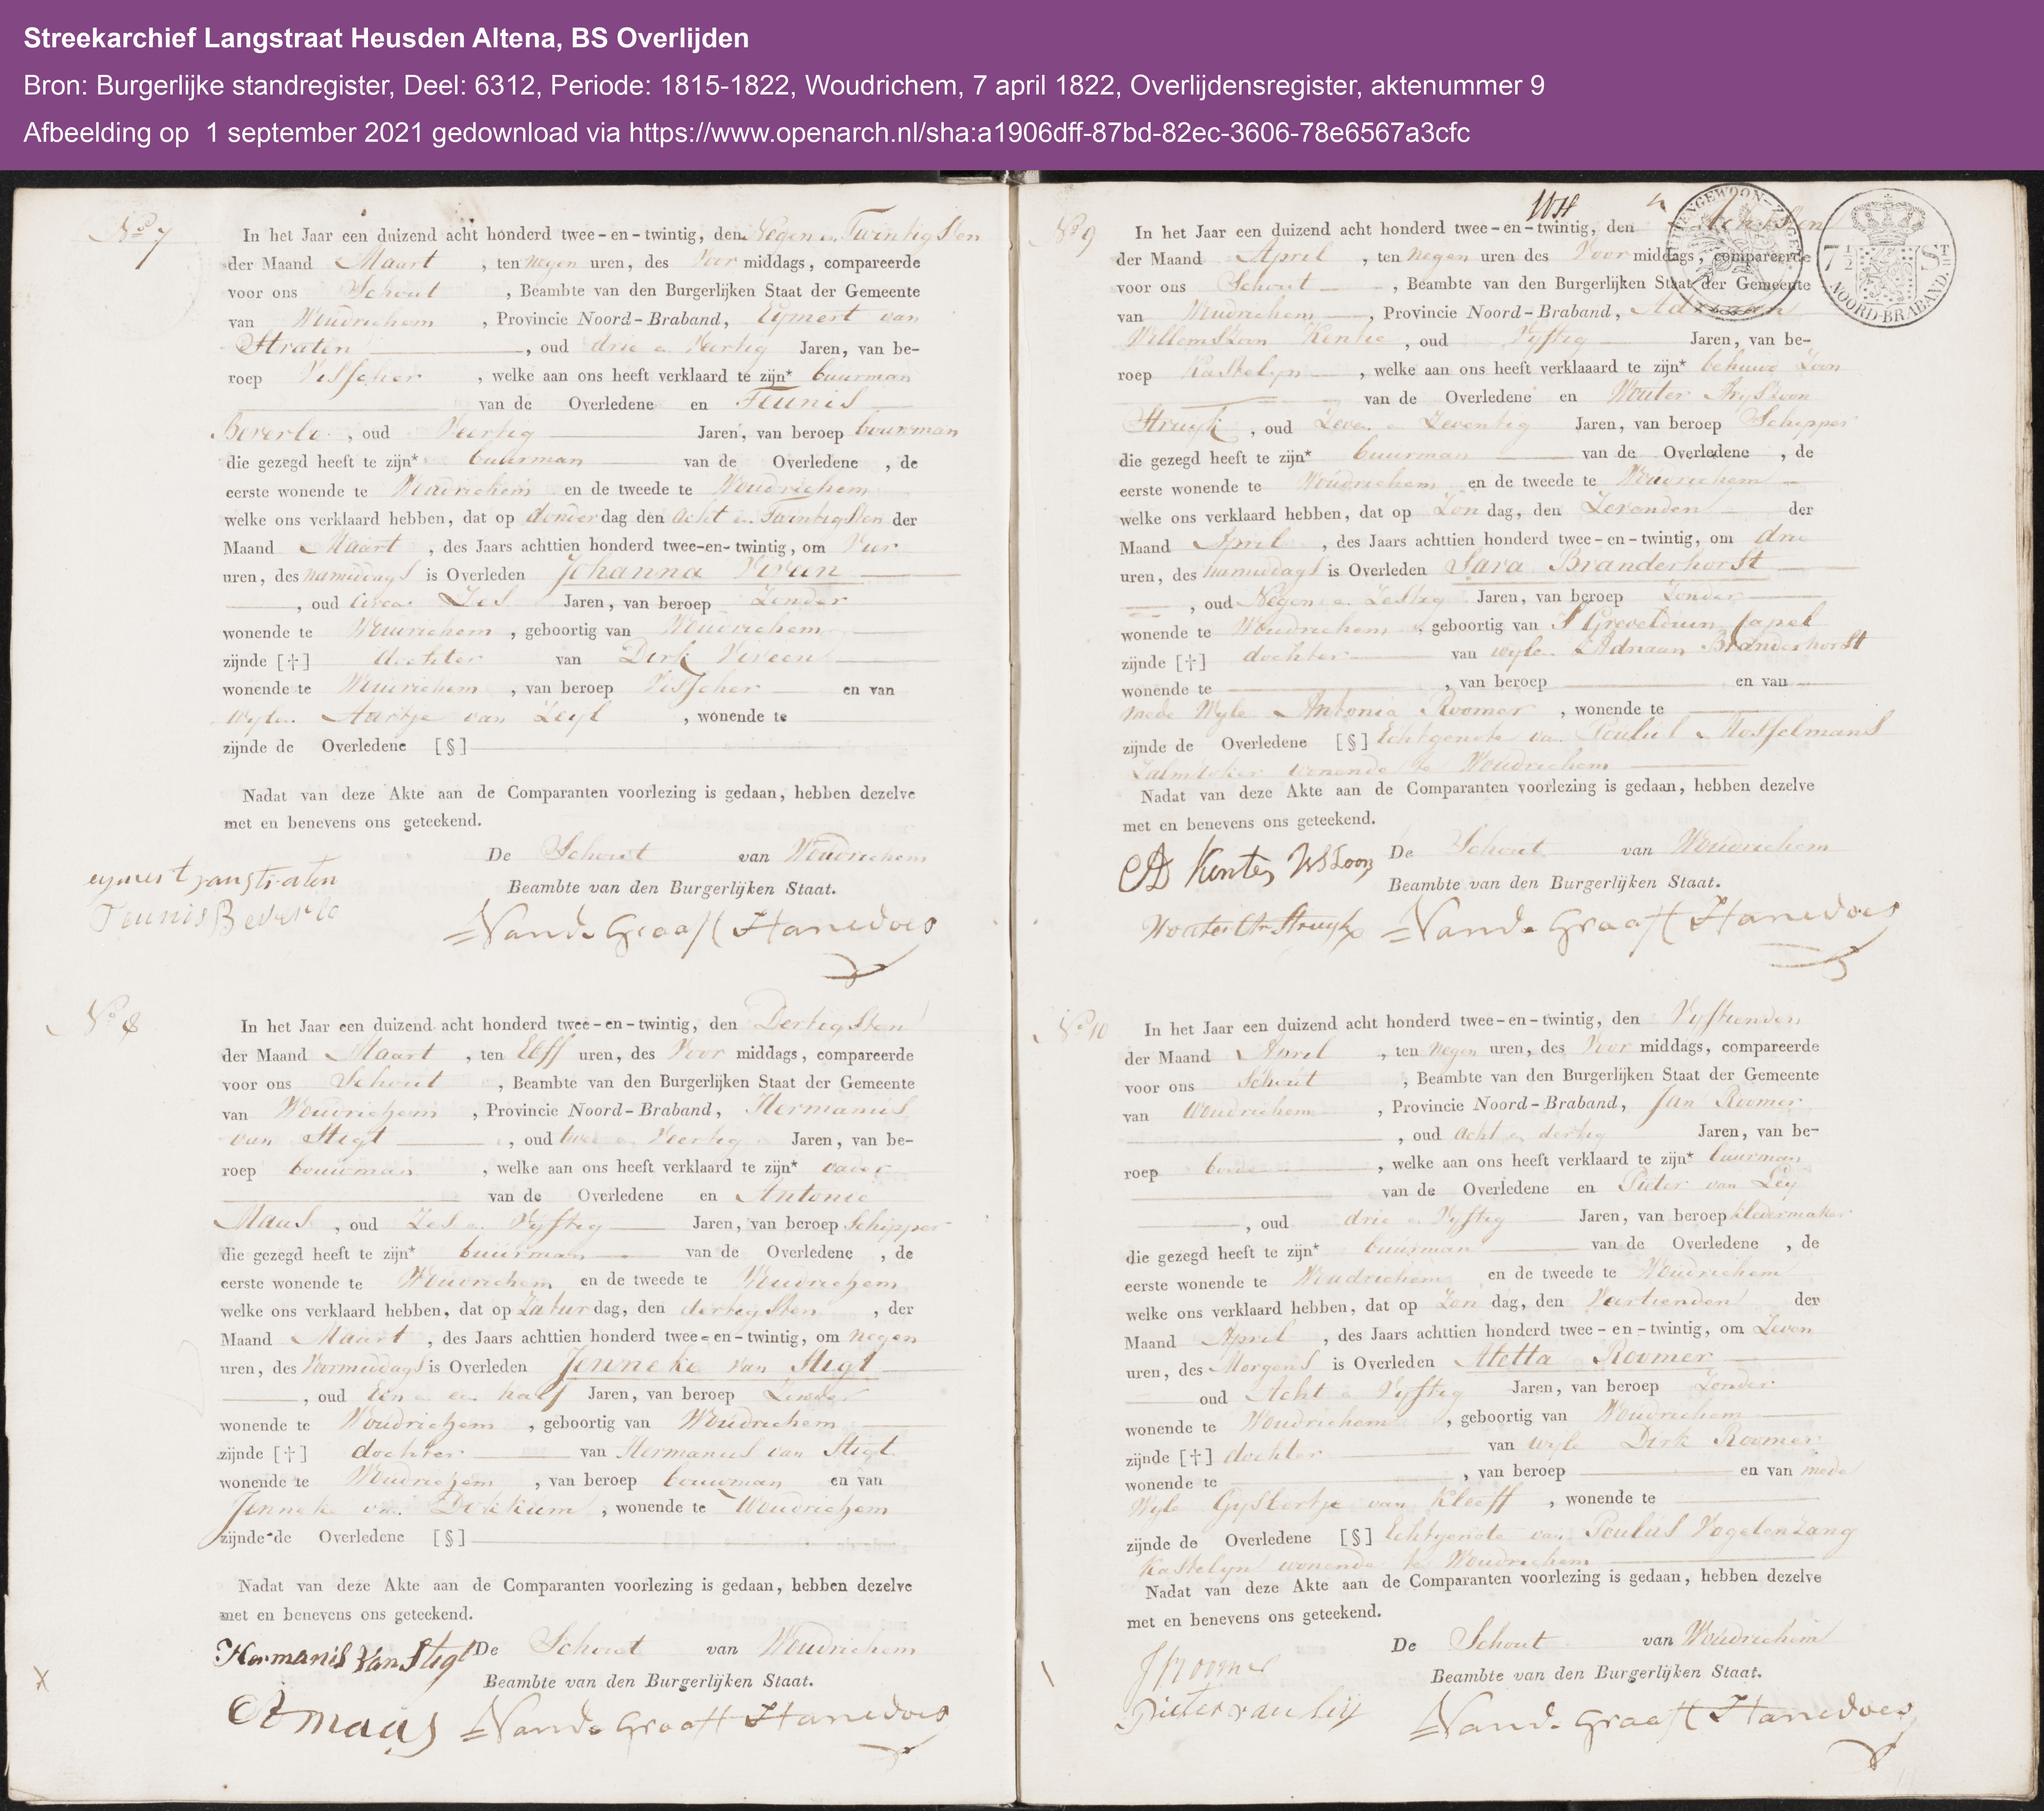 Streekarchief Langstraat Heusden Altena, BS Overlijden
Bron: Burgerlijke standregister, Deel: 6312, Periode: 1815-1822, Woudrichem, 7 april 1822, Overlijdensregister, aktenummer 9
Afbeelding op 1 september 2021 gedownload via https://www.openarch.nl/sha:a1906dff-87bd-82ec-3606-78e6567a3cfc
No 7
In het Jaar een duizend acht honderd twee-en-twintig, den Negen en Twintigsten
der Maand Maart , ten Negen uren, des Voor middags, compareerde
voor ons Schout , Beambte van den Burgerlijken Staat der Gemeente
van Woudrichem , Provincie Noord-Braband, Eymert van
Straten , oud drie en Veertig Jaren, van be-
roep Visscher , welke aan ons heeft verklaard te zijn* buurman
van de Overledene en Teunis
Beverlo , oud Veertig Jaren, van beroep bouwman
die gezegd heeft te zijn* buurman van de Overledene , de
eerste wonende te Woudrichem en de tweede te Woudrichem
welke ons verklaard hebben, dat op donder dag den acht en Twintigsten der
Maand Maart , des Jaars achttien honderd twee-en-twintig, om Vier
uren, des namiddags is Overleden Johanna Vereen
, oud circa Zes Jaren, van beroep Zonder
wonende te Woudrichem , geboortig van Woudrichem
zijnde [†] dochter van Dirk Vereen
wonende te Woudrichem , van beroep Visscher en van
wyle Aartje van Zeyl , wonende te
zijnde de Overledene [§]
Nadat van deze Akte aan de Comparanten voorlezing is gedaan, hebben dezelve
met en benevens ons geteekend.
De Schout van Woudrichem
Beambte van den Burgerlijken Staat.
eymert van straten
Teunis Beverlo
Van de Graaff Hanedoes
No 8
In het Jaar een duizend acht honderd twee-en-twintig, den Dertigsten
der Maand Maart , ten Elff uren, des Voor middags, compareerde
voor ons Schout , Beambte van den Burgerlijken Staat der Gemeente
van Woudrichem , Provincie Noord-Braband, Hermanus
van Stigt , oud twee en Veertig Jaren, van be-
roep bouwman , welke aan ons heeft verklaard te zijn* vader
van de Overledene en Antonie
Maas , oud Zes en Vyftig Jaren, van beroep Schipper
die gezegd heeft te zijn* buurman van de Overledene , de
eerste wonende te Woudrichem en de tweede te Woudrichem
welke ons verklaard hebben, dat op Zatur dag, den dertigsten , der
Maand Maart , des Jaars achttien honderd twee-en-twintig, om negen
uren, des Voormiddags is Overleden Jenneke van Stigt
, oud Een en een half Jaren, van beroep Zonder
wonende te Woudrichem , geboortig van Woudrichem
zijnde [†] dochter van Hermanus van Stigt
wonende te Woudrichem , van beroep bouwman en van
Jenneke van , wonende te Woudrichem
zijnde de Overledene [§]
Nadat van deze Akte aan de Comparanten voorlezing is gedaan, hebben dezelve
met en benevens ons geteekend.
De Schout van Woudrichem
Beambte van den Burgerlijken Staat.
Hermanis van Stigt
A maas
Van de Graaff Hanedoes
NOORD-BRABAND.
No 9
In het Jaar een duizend acht honderd twee-en-twintig, den Achtsten
der Maand April , ten Negen uren des Voor middags, compareerde
voor ons Schout , Beambte van den Burgerlijken Staat der Gemeente
van Woudrichem , Provincie Noord-Braband, Adriaan
Willemszoon Kentie , oud Vyftig Jaren, van be-
roep Kastelyn , welke aan ons heeft verklaaard te zijn* behuwd Zoon
van de Overledene en Wouter
Struyk , oud Zeven en Zeventig Jaren, van beroep Schipper
die gezegd heeft te zijn* buurman van de Overledene , de
eerste wonende te Woudrichem en de tweede te Woudrichem
welke ons verklaard hebben, dat op Zon dag, den Zevenden der
Maand April , des Jaars achttien honderd twee-en-twintig, om drie
uren, des namiddags is Overleden Sara Branderhorst
, oud Negen en Zestig Jaren, van beroep Zonder
wonende te Woudrichem , geboortig van S Grevelduin Capel
zijnde [†] dochter van wyle Adriaan Branderhorst
wonende te , van beroep en van
mede Wyle Antonia Roomer , wonende te
zijnde de Overledene [§] Echtgenote van Poulus Mosselmans
wonende te Woudrichem
Nadat van deze Akte aan de Comparanten voorlezing is gedaan, hebben dezelve
met en benevens ons geteekend.
De Schout van Woudrichem
Beambte van den Burgerlijken Staat.
Van de Graaff Hanedoes
No 10
In het Jaar een duizend acht honderd twee-en-twintig, den Vyftienden
der Maand April , ten Negen uren, des Voor middags, compareerde
voor ons Schout , Beambte van den Burgerlijken Staat der Gemeente
van Woudrichem , Provincie Noord-Braband, Jan Roomer
, oud acht en dertig Jaren, van be-
roep , welke aan ons heeft verklaard te zijn* buurman
van de Overledene en Pieter van Ley
, oud drie en Vyftig Jaren, van beroep kledermaker
die gezegd heeft te zijn* buurman van de Overledene , de
eerste wonende te Woudrichem en de tweede te Woudrichem
welke ons verklaard hebben, dat op Zon dag, den Veertienden der
Maand April , des Jaars achttien honderd twee-en-twintig, om Zeven
uren, des Morgens is Overleden Metta Roomer
oud Acht en Vyftig Jaren, van beroep Zonder
wonende te Woudrichem , geboortig van Woudrichem
zijnde [†] dochter van wyle Dirk Roomer
wonende te , van beroep en van mede
Wyle Gysbertje van Kleeff , wonende te
zijnde de Overledene [§] Echtgenote van Poulus Vogelenzang
Kastelyn wonende te Woudrichem
Nadat van deze Akte aan de Comparanten voorlezing is gedaan, hebben dezelve
met en benevens ons geteekend.
De Schout van Woudrichem
Beambte van den Burgerlijken Staat.
J Roomer
Pieter van Ley
Van de Graaff Hanedoes